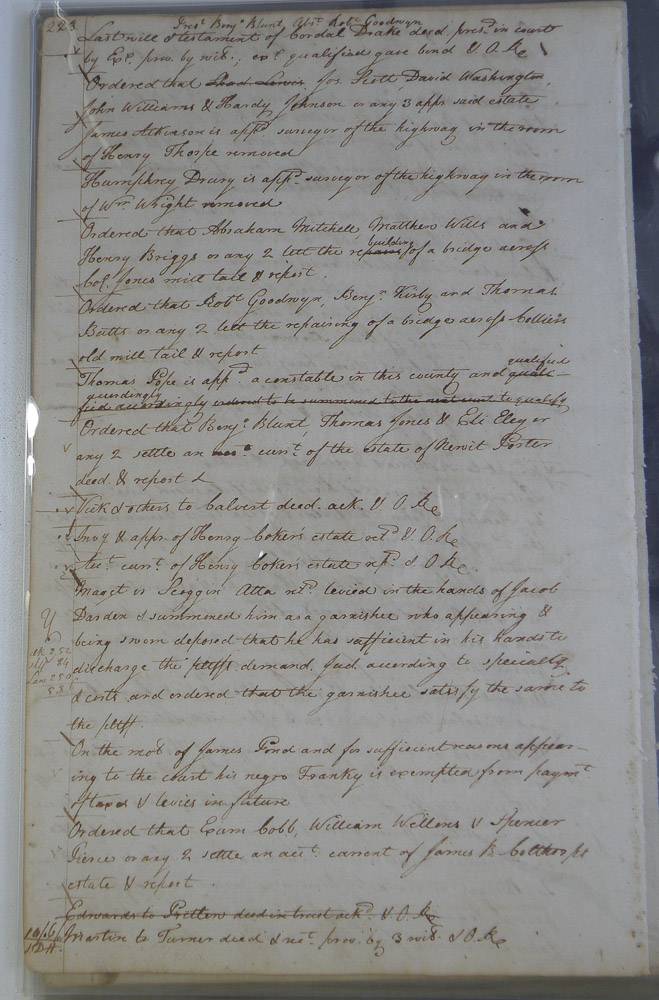 223 Pres.t Benj.a Blunt, Abs.t Rob.t Goodwyn
Last will & testament of Cordal Drake deed. pres.d in court
by Ex.r prov. by wit.s; ex.r qualified gave bond & O. Re
Ordered that Jos. Scott, David Washington,
John Williams & Hardy Johnson or any 3 appr said estate
James Atkinson is app.d surveyor of the highway in the room
of Henry Thorpe removed
Humphrey Drury is app.d surveyor of the highway in the room
of Wm Wright removed
Ordered that Abraham Mitchell, Matthew Wills and
Henry Briggs or any 2 lett the building of a bridge across
Col. Jones mill tail & report.
Ordered that Rob.t Goodwyn, Benj.a Kirby and Thomas
Batts or any 2 lett the repairing of a bridge across Colliers
old mill tail & report
Thomas Pope is app.d a constable in this county and qualified
accordingly ordered to be summoned to the next court to qualify
Ordered that Benj.a Blunt, Thomas Jones & Eli Eley or
any 2 settle an curr.t of the estate of Porter
deed. & report
Vick & others to Calvert deed. ack. & O. Re
Invy & appr. of Henry Coker's estate ret.d & O. Re
Acc.t curr.t of Henry Coker's estate ret.d & O Re.
Maget vs Scoggin Atta ret.d levied in the hands of Jacob
Darden & summoned him as a garnishee who appearing &
being sworn deposed that he has sufficient in his hands to
discharge the pltffs demand. Jud. according to specialty
& costs and ordered that the garnishee satisfy the same to
the pltff.
On the mot. of James Pond and for sufficient reasons appear-
ing to the court his negro Franky is exempted from paym.t
of taxes & levies in future
Ordered that Exum Cobb, William Wellons & Spencer
Pierce or any 2 settle an acc.t current of James B. estate & report.
Edwards to Pretlow deed in trust ack.d & O. Re
Martin to Turner deed & rec.t prov. by 3 wit.s & O Re